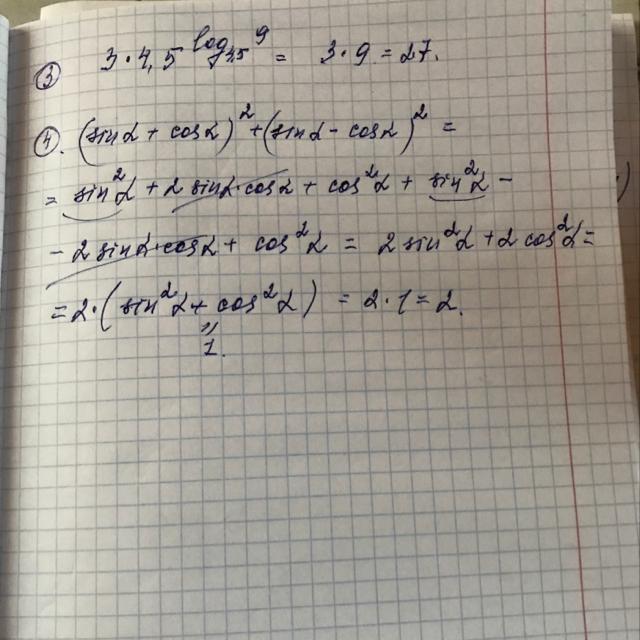 ③ 3·4,5^log_4,5 9 = 3·9=27.
④. (sinα + cosα)² + (sinα - cosα)² =
= sin²α + 2 sinα·cosα + cos²α + sin²α -
- 2 sinα·cosα + cos²α = 2 sin²α + 2 cos²α =
= 2·(sin²α + cos²α) = 2·1 = 2.
"
1.